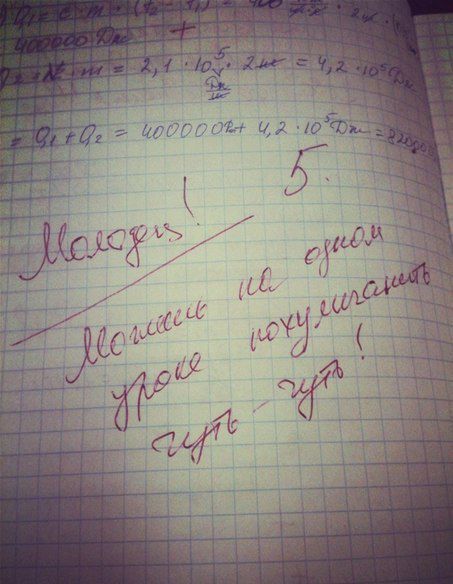 Q₁ = c · m · (t₂ - t₁) = 400 · 2
400000 Дж +
· m = 2,1 · 10⁵ Дж/кг · 2 кг = 4,2 · 10⁵ Дж
= Q₁ + Q₂ = 400000 Дж + 4,2 · 10⁵ Дж = 82000
5.
Молодец!
Можешь на одном
уроке похулиганить
чуть-чуть!